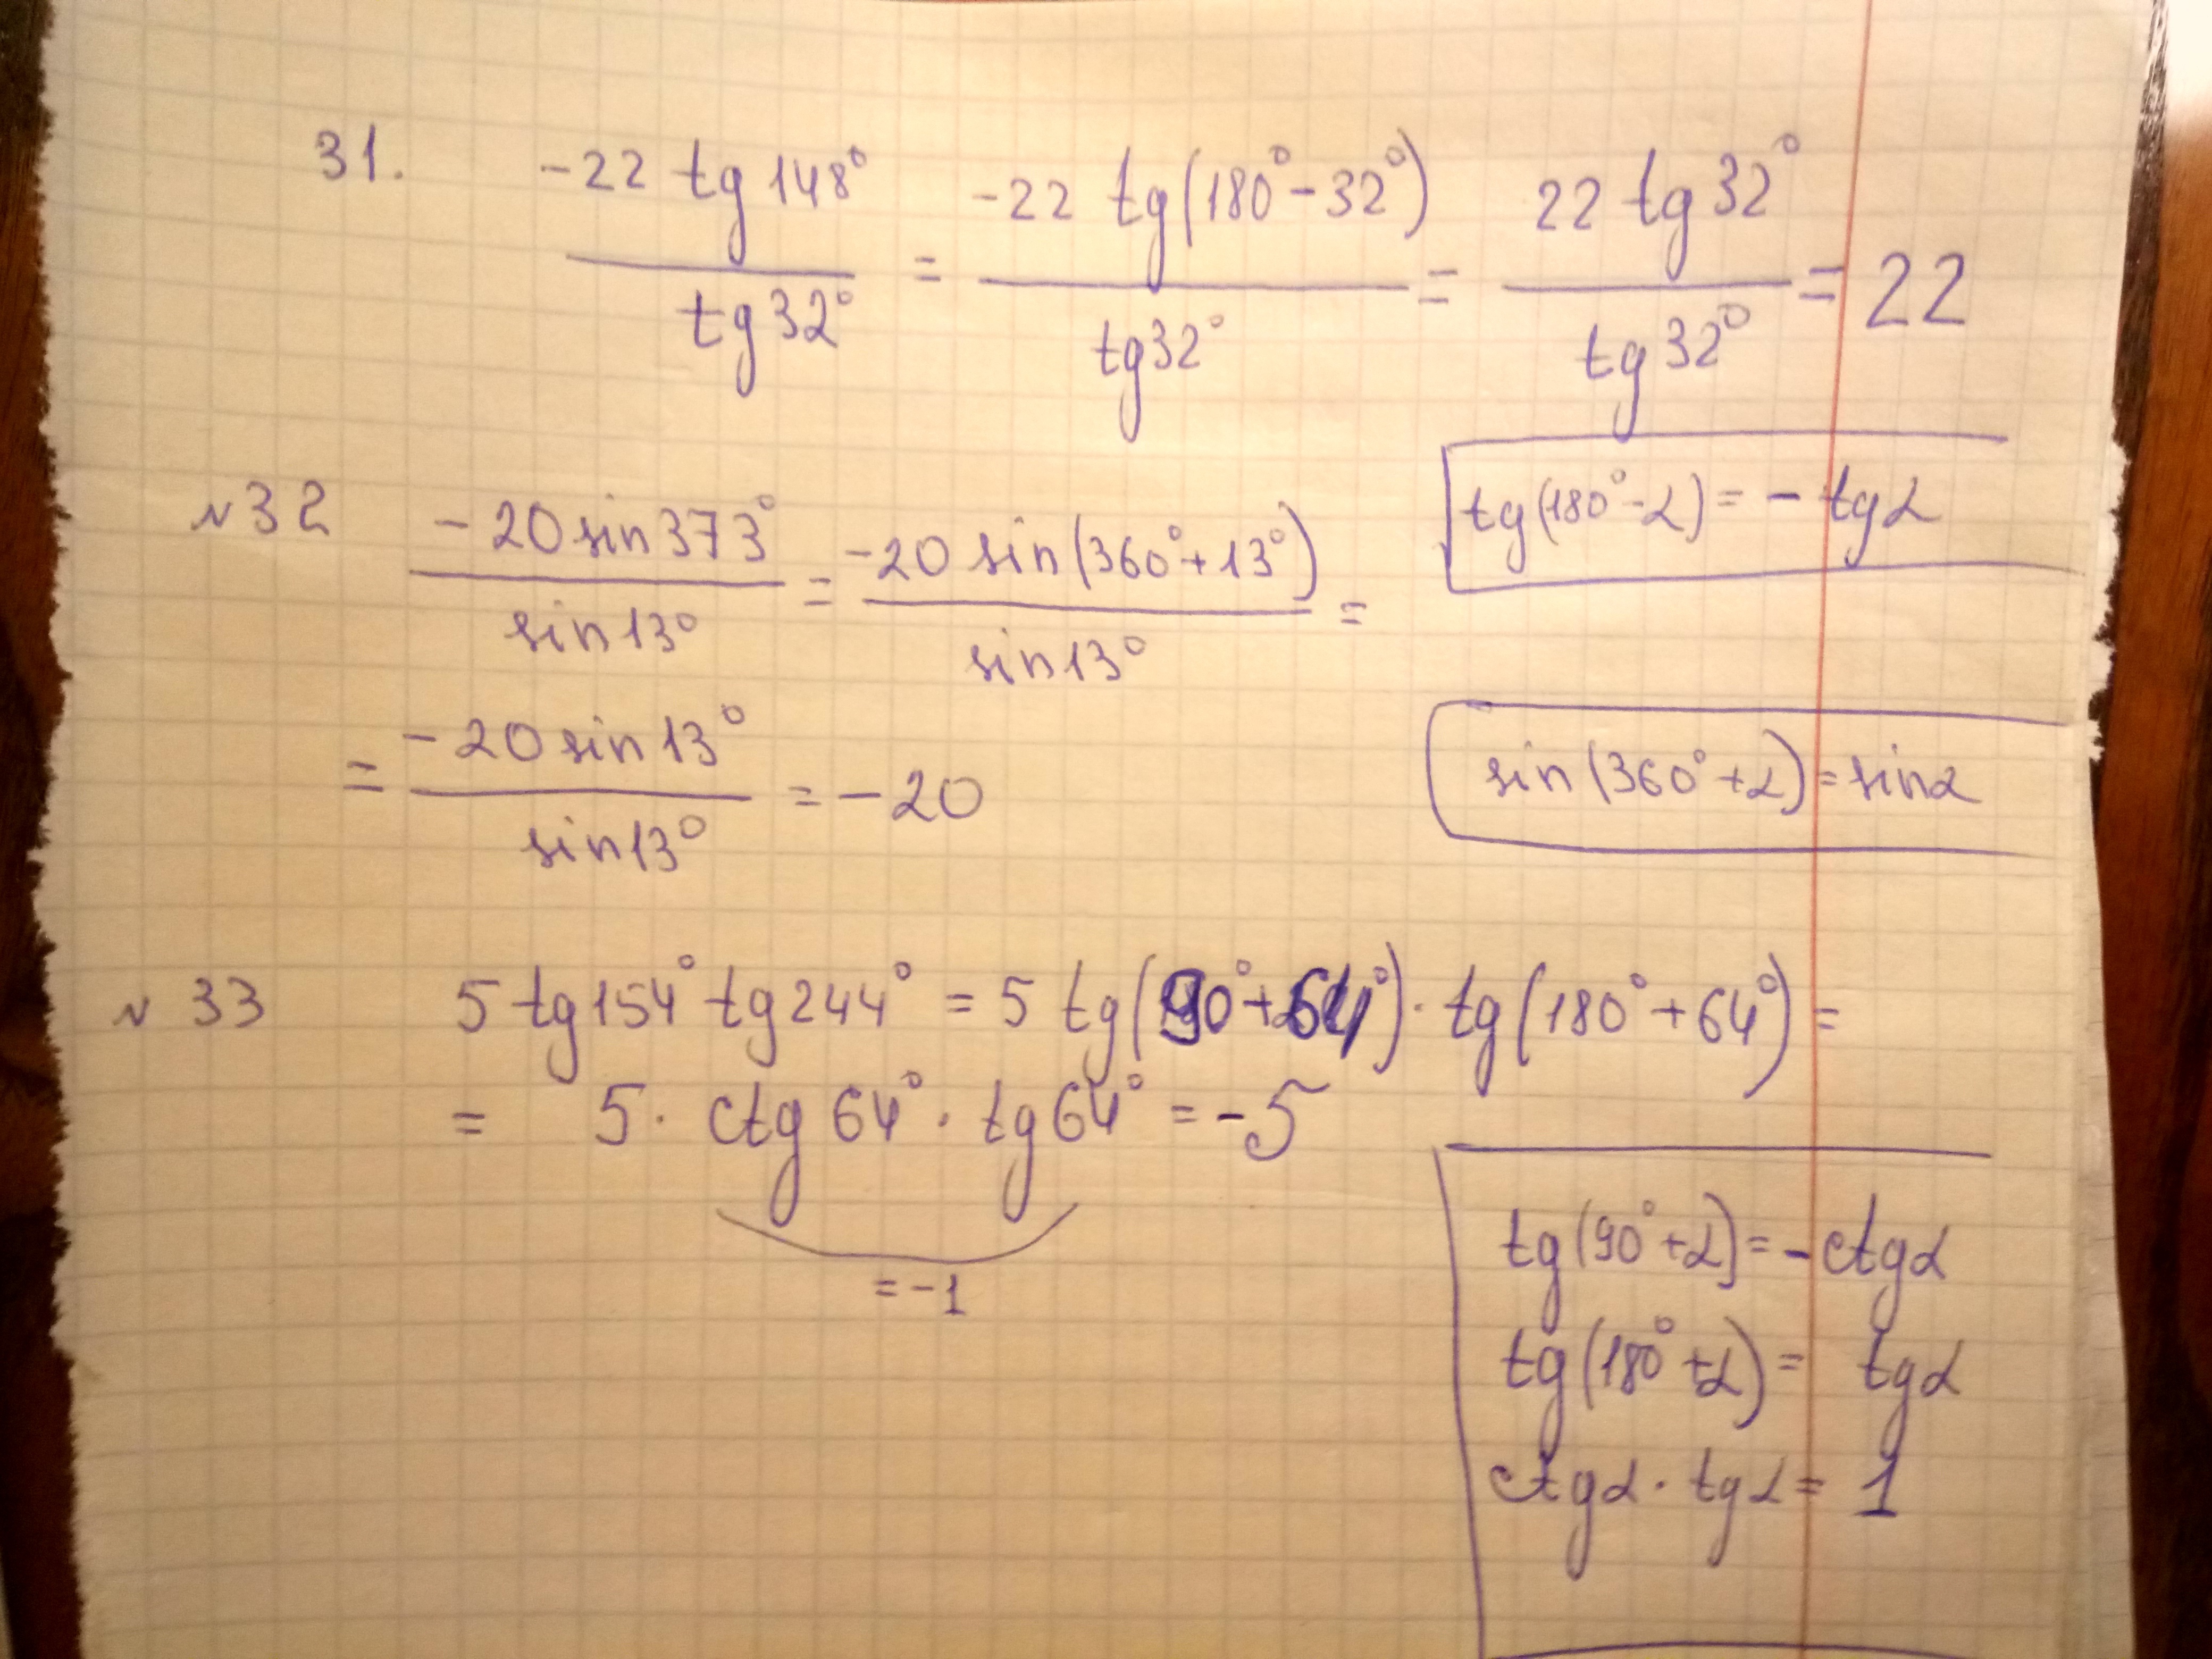 31. -22 tg 148° / tg 32° = -22 tg(180° - 32°) / tg 32° = 22 tg 32° / tg 32° = 22
tg(180° - α) = - tg α
№32 -20 sin 373° / sin 13° = -20 sin(360° + 13°) / sin 13° =
= -20 sin 13° / sin 13° = -20
sin(360° + α) = sin α
№ 33 5 tg 154° tg 244° = 5 tg(90° + 64°) · tg(180° + 64°) =
= 5 · ctg 64° · tg 64° = -5
= -1
tg(90° + α) = - ctg α
tg(180° + α) = tg α
ctg α · tg α = 1